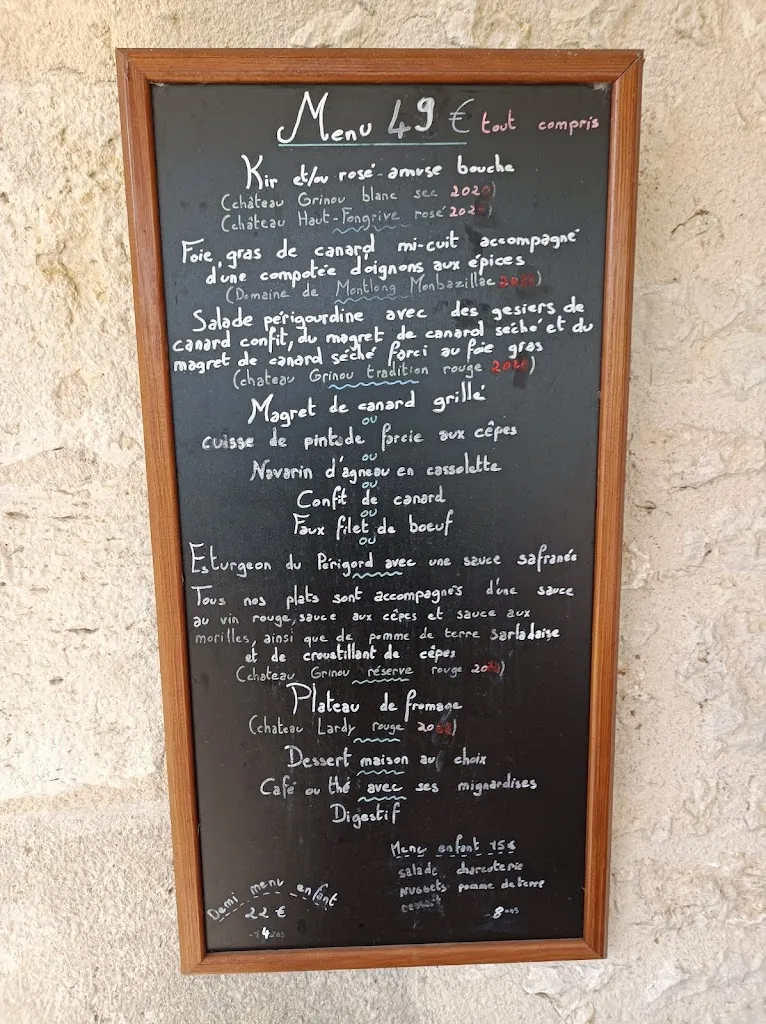 Menu 49 € tout compris
Kir et/ou rosé-amuse bouche
(château Grinou blanc sec 2020)
(château Haut-Fongrive rosé 202
Foie gras de canard mi-cuit accompagné
d'une compotée d'oignons aux épices
(Domaine de Montlong Monbazillac
Salade périgourdine avec des gesiers de
canard confit, du magret de canard seché et du
magret de canard séché farci au foie gras
(chateau Grinou tradition rouge
Magret de canard grillé
ou
cuisse de pintade farcie aux cêpes
ou
Navarin d'agneau en cassolette
ou
Confit de canard
ou
Faux filet de boeuf
ou
Esturgeon du Périgord avec une sauce safranée
Tous nos plats sont accompagnés d'une sauce
au vin rouge, sauce aux cêpes et sauce aux
morilles, ainsi que de pomme de terre Sarladaise
et de croustillant de cêpes
(chateau Grinou réserve rouge
Plateau de fromage
(chateau Lardy rouge
Dessert maison au choix
Café ou thé avec ses mignardises
Digestif
Menu enfant 15€
salade charcuterie
nuggets pomme de terre
dessert
-8ans
Demi menu enfant
22 €
-14ans